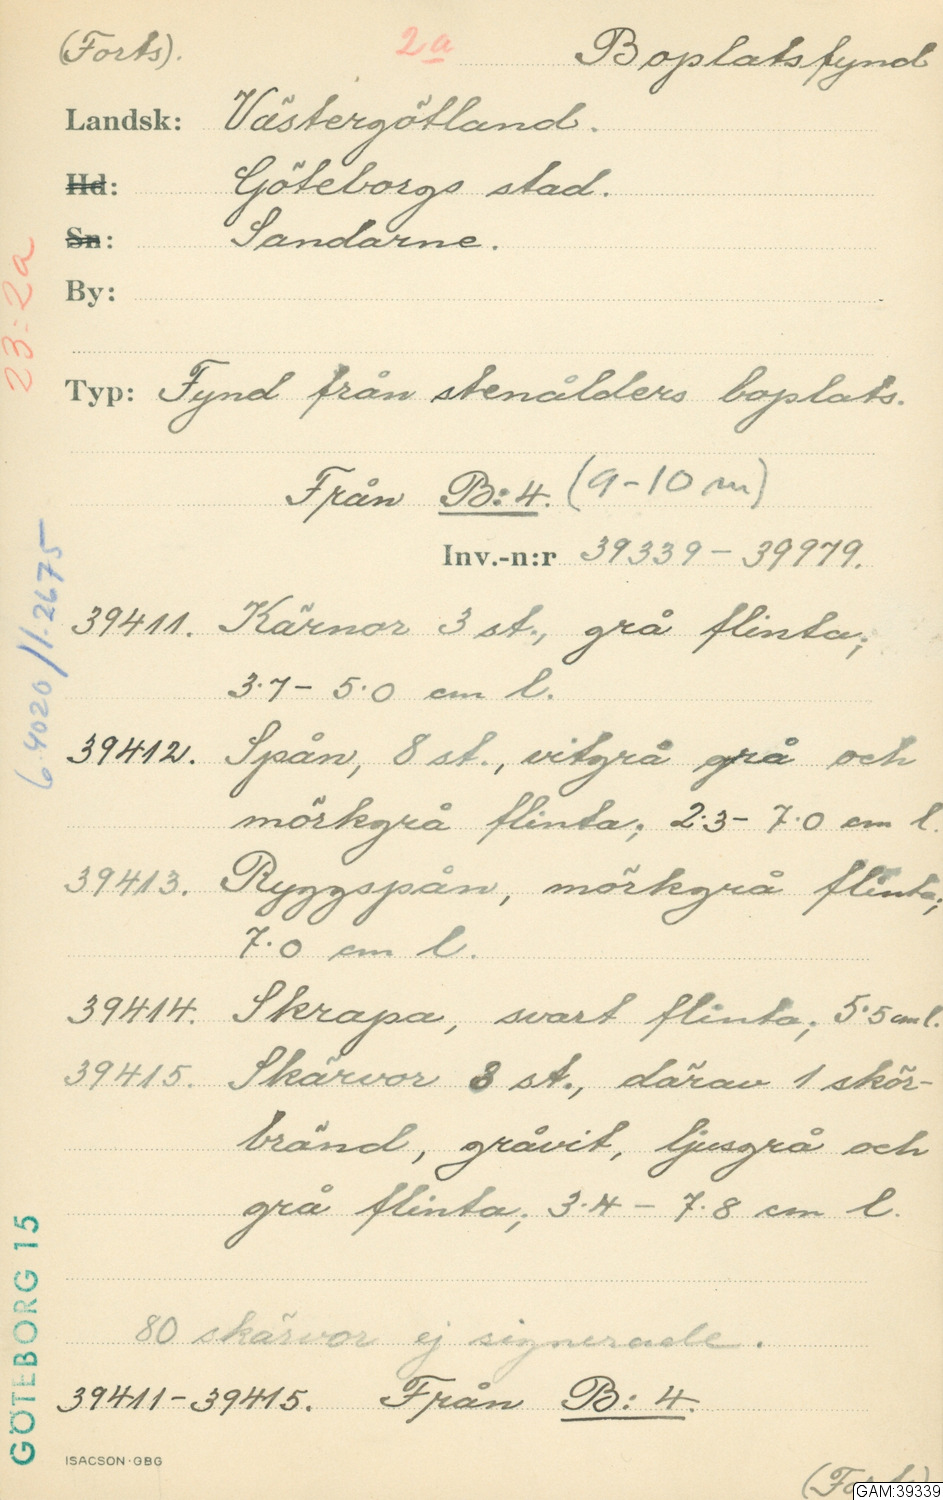 (Forts). 2a Boplatsfynd
Landsk: Västergötland.
Hd: Göteborgs stad.
Sn: Sandarne.
By:
Typ: Fynd från stenålders boplats.
Från B:4. (9-10 m)
Inv.-n:r 39339 - 39979.
39411. Kärnor 3 st., grå flinta;
3.7 - 5.0 cm l.
39412. Spån, 8 st., vitgrå grå och
mörkgrå flinta; 2.3 - 7.0 cm l.
39413. Ryggspån, mörkgrå flinta;
7.0 cm l.
39414. Skrapa, svart flinta; 5.5 cm l.
39415. Skärvor 8 st., därav 1 skör-
bränd, gråvit, ljusgrå och
grå flinta; 3.4 - 7.8 cm l.
80 skärvor ej signerade.
39411 - 39415. Från B: 4.
(Forts)
ISACSON·GBG
GAM:39339
23-2a
6.4020/1.2675
GÖTEBORG 15